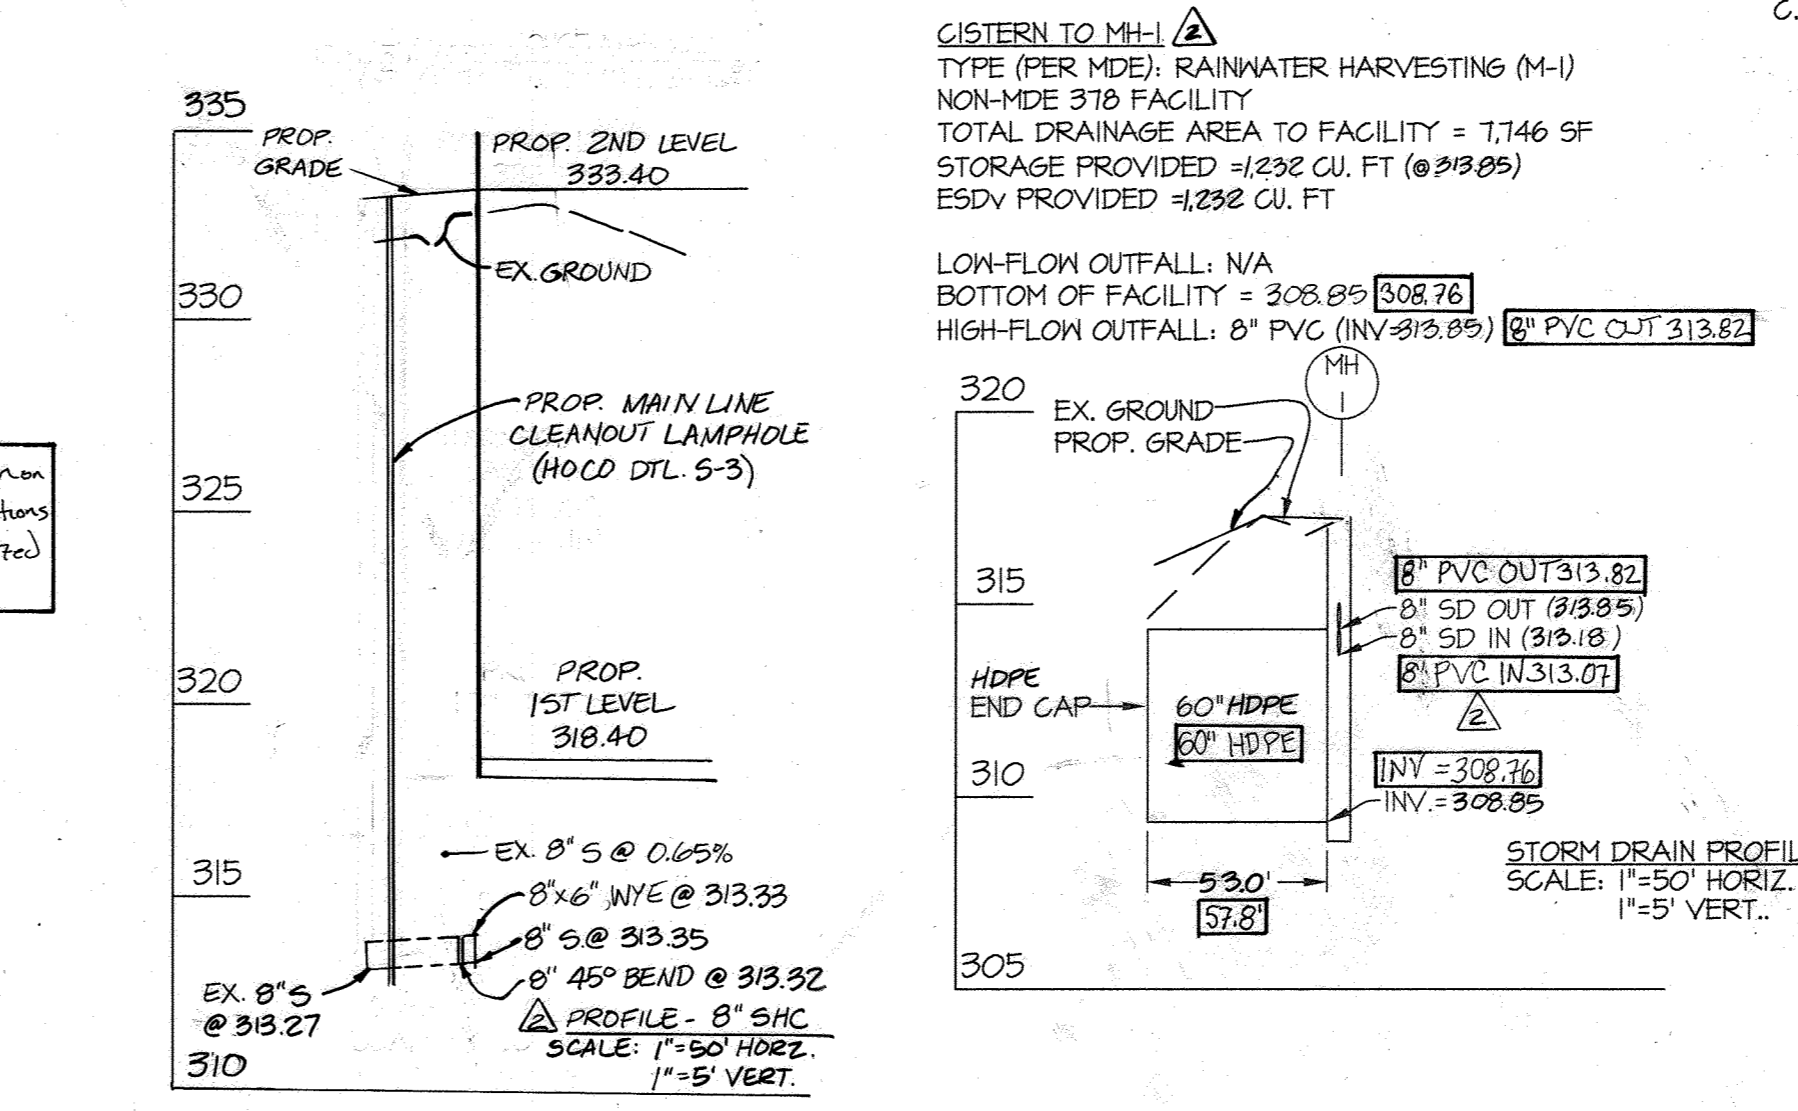 335
PROP.
GRADE
PROP. 2ND LEVEL
333.40
EX. GROUND
330
PROP. MAIN LINE
CLEANOUT LAMPHOLE
(HOCO DTL. S-3)
325
320
PROP.
1ST LEVEL
318.40
315
EX. 8" S @ 0.65%
8"x6" WYE @ 313.33
8" S.@ 313.35
8" 45° BEND @ 313.32
EX. 8"S
@ 313.27
2 PROFILE - 8" SHC
SCALE: 1"=50' HORZ.
1"=5' VERT.
310
C.
CISTERN TO MH-1 2
TYPE (PER MDE): RAINWATER HARVESTING (M-1)
NON-MDE 378 FACILITY
TOTAL DRAINAGE AREA TO FACILITY = 7,746 SF
STORAGE PROVIDED =1,232 CU. FT (@313.85)
ESDv PROVIDED =1,232 CU. FT
LOW-FLOW OUTFALL: N/A
BOTTOM OF FACILITY = 308.85 308.76
HIGH-FLOW OUTFALL: 8" PVC (INV=313.85) 8" PVC OUT 313.82
MH
320
EX. GROUND
PROP. GRADE
315
8" PVC OUT 313.82
8" SD OUT (313.85)
8" SD IN (313.18)
8" PVC IN 313.07
2
HDPE
END CAP
60" HDPE
60" HDPE
310
INV = 308.76
INV. = 308.85
53.0'
57.8'
305
STORM DRAIN PROFIL
SCALE: 1"=50' HORIZ.
1"=5' VERT..